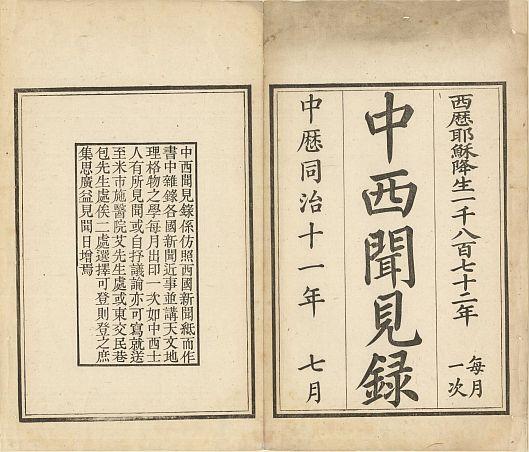 西歷耶穌降生一千八百七十二年
每月
一次
中西聞見錄
中歷同治十一年
七月
中西聞見錄係仿照西國新聞紙而作
書中雜錄各國新聞近事並講天文地
理格物之學每月出印一次如中西士
人有所見聞或自抒議論亦可寫就送
至米市施醫院艾先生處或東交民巷
包先生處俟二處選擇可登則登之庶
集思廣益見聞日增焉